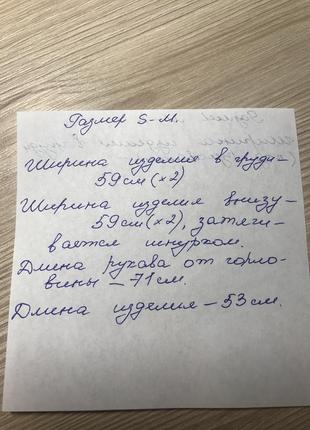 Размер S-M.
Ширина изделия в груди -
59см (х2)
Ширина изделия внизу -
59см (х2), затяги-
вается шнурком.
Длина рукава от горло-
вины - 71см.
Длина изделия - 53см.